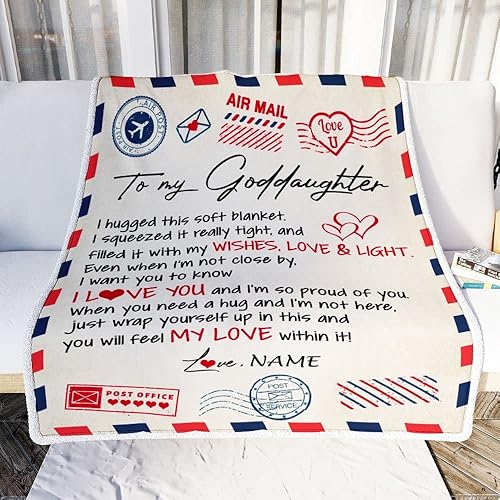 AIR POST
AIR POST
AIR MAIL
Love
U
To my Goddaughter
I hugged this soft blanket.
I squeezed it really tight, and
filled it with my WISHES, LOVE & LIGHT.
Even when I'm not close by,
I want you to know
I L VE YOU and I'm so proud of you.
When you need a hug and I'm not here,
just wrap yourself up in this and
you will feel MY LOVE within it!
Love, NAME
POST OFFICE
POST
SERVICE